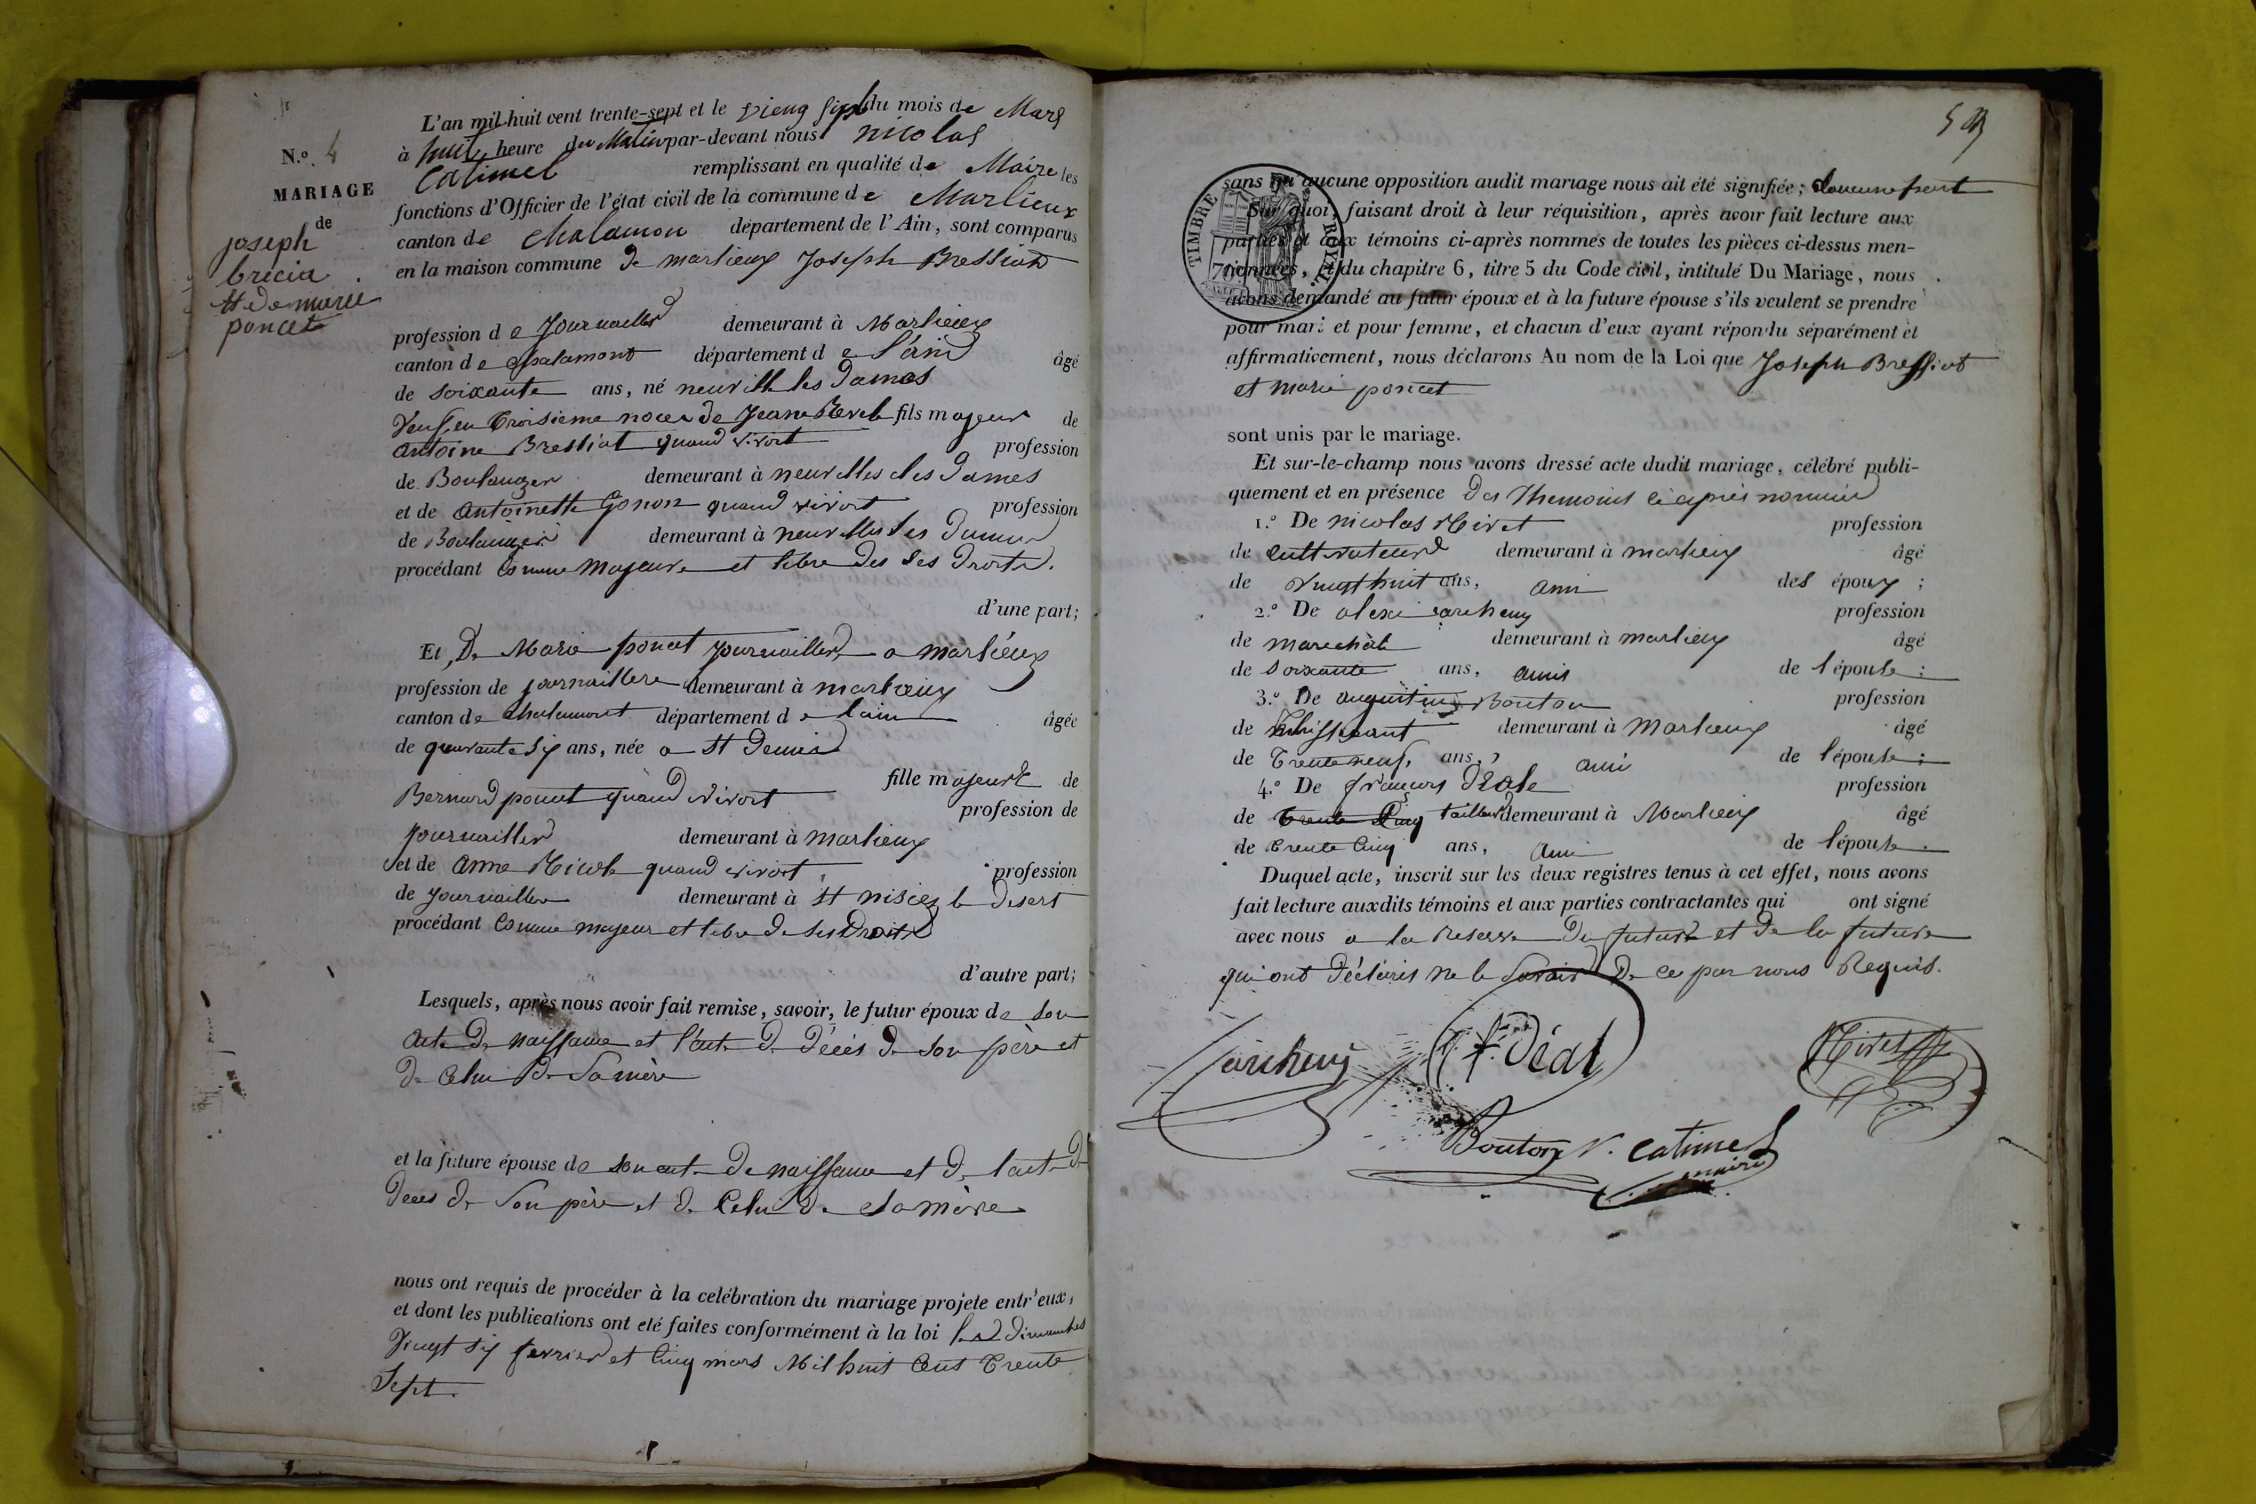 N.º 4
MARIAGE
de
joseph
bricia
et de marie
poncet
L'an mil huit cent trente-sept et le vieng sipt du mois de Mars
à huit heure du Matin par-devant nous nicolas
Catimel remplissant en qualité de Maire les
fonctions d'Officier de l'état civil de la commune de Marlieux
canton de chalamon département de l'Ain, sont comparus
en la maison commune de marlieux Joseph Bressiat
profession de Journallier demeurant à Marlieux
canton de chalamont département de l'ain âgé
de soixante ans, né neuville les Dames
Veuf en troisieme noces de Jeanne Revel fils majeur de
antoine Bressiat quand vivoit profession
de Boulanger demeurant à neuvilles les Dames
et de antoinette Gonon quand vivoit profession
de Boulangèr demeurant à neuvilles les Dames
procédant comme Majeure et libre des Ses Droits.
d'une part;
Et De Marie poncet journallier a marlieux
profession de journaillere demeurant à marlieux
canton de chalamont département de lain âgée
de quarante six ans, née a St Denis
fille majeure de
Bernard poncet quand vivoit profession de
journallier demeurant à marlieux
et de anne quand vivoit profession
de journallier demeurant à St nisiez le Desert
procédant comme majeur et libre de ses Droits
d'autre part;
Lesquels, après nous avoir fait remise, savoir, le futur époux de son
acte de naissance et l'acte de décès de son père et
de celui de sa mère
et la future épouse de son acte de naissance et de l'acte de
Deces de son père et de Celui de sa mère
nous ont requis de procéder à la celébration du mariage projete entr'eux,
et dont les publications ont eté faites conformément à la loi les dimanches
Vingt six fevrier et Cinq mars Mil huit Cent Trente
Sept.
TIMBRE ROYAL
sans qu'aucune opposition audit mariage nous ait été signifiée;
Sur quoi, faisant droit à leur réquisition, après avoir fait lecture aux
parties et aux témoins ci-après nommés de toutes les pièces ci-dessus men-
tionnées, et du chapitre 6, titre 5 du Code civil, intitulé Du Mariage, nous
avons demandé au futur époux et à la future épouse s'ils veulent se prendre
pour mari et pour femme, et chacun d'eux ayant répondu séparément et
affirmativement, nous déclarons Au nom de la Loi que Joseph Bressiat
et marie poncet
sont unis par le mariage.
Et sur-le-champ nous avons dressé acte dudit mariage, célébré publi-
quement et en présence des Themoins ci après nommés
1.º De nicolas Miret profession
de cultivateur demeurant à marlieux âgé
de vingt huit ans, ami des époux;
2.º De alexi carcheux profession
de marechal demeurant à marlieux âgé
de soixante ans, amis de l'épouse;
3.º De Bouton profession
de demeurant à Marlieux âgé
de Trente neuf, ans, ami de l'épouse;
4.º De françois Déal profession
de trente Cinq tailleur demeurant à Marlieux âgé
de trente Cinq ans, Ami de l'épouse.
Duquel acte, inscrit sur les deux registres tenus à cet effet, nous avons
fait lecture auxdits témoins et aux parties contractantes qui ont signé
avec nous a la reserve Du futur et De la future
qui ont Déclarés ne le Savoir De ce par nous Requis.
f. Déal
Miret
Bouton N. Catimel
maire